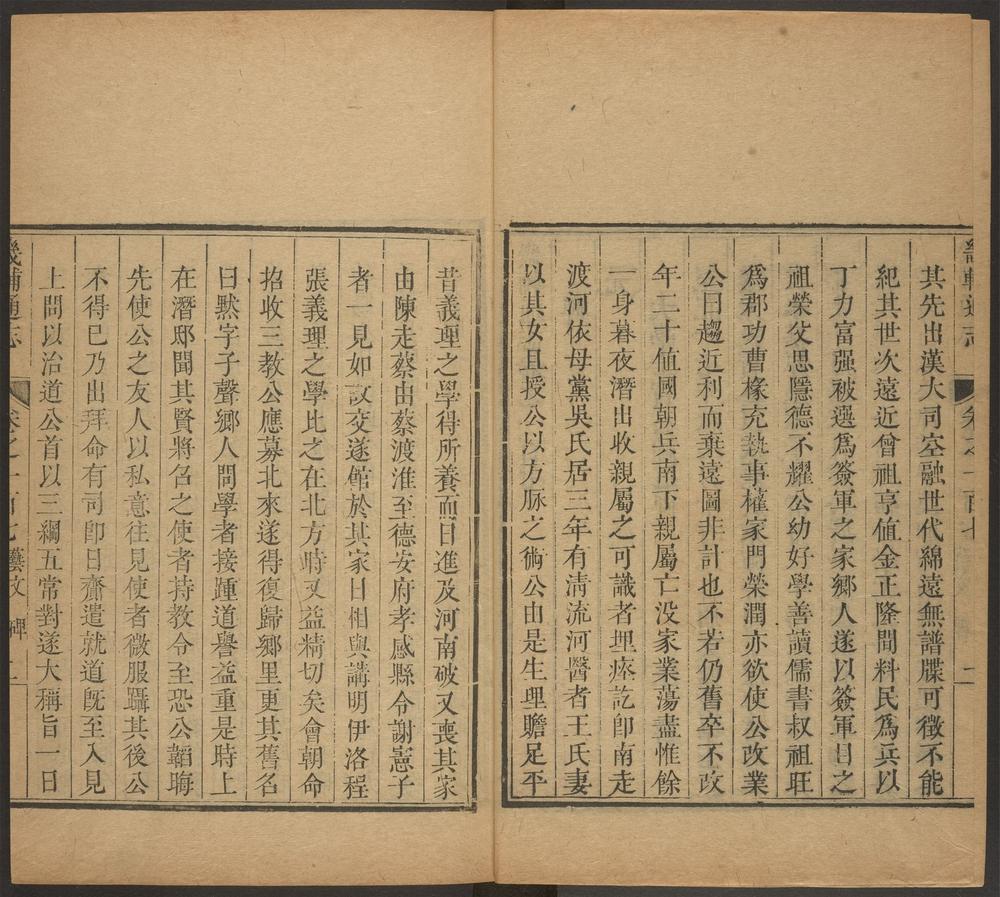 畿輔通志 卷之一百七
其先出漢大司空融世代綿遠無譜牒可徵不能
紀其世次遠近曾祖亨值金正隆間料民爲兵以
丁力富强被選爲簽軍之家鄉人遂以簽軍目之
祖榮父思隱德不耀公幼好學善讀儒書叔祖旺
爲郡功曹椽充執事權家門榮潤亦欲使公改業
公曰趨近利而棄遠圖非計也不若仍舊卒不改
年二十値國朝兵南下親屬亡没家業蕩盡惟餘
一身暮夜潛出收親屬之可識者埋瘞訖卽南走
渡河依母黨吳氏居三年有清流河醫者王氏妻
以其女且授公以方脉之術公由是生理贍足平
昔義理之學得所養而日進及河南破又喪其家
由陳走蔡由蔡渡淮至德安府孝感縣令謝憲子
者一見如故交遂館於其家日相與講明伊洛程
張義理之學比之在北方時又益精切矣會朝命
招收三教公應募北來遂得復歸鄉里更其舊名
曰默字子聲鄉人問學者接踵道譽益重是時上
在潛邸聞其賢將召之使者持教令至恐公韜晦
先使公之友人以私意往見使者微服躡其後公
不得已乃出拜命有司卽日齎遣就道既至入見
上問以治道公首以三綱五常對遂大稱旨一日
畿輔通志 卷之一百七 藝文 碑